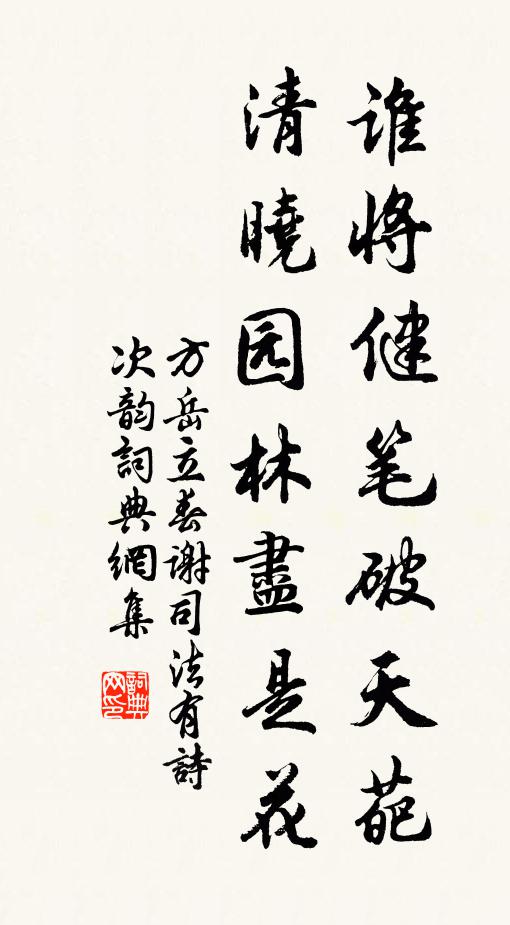 谁将健笔破天葩
清曉园林盡是花
方岳立春謝司法有詩
次韵詞典網集
詞典网印